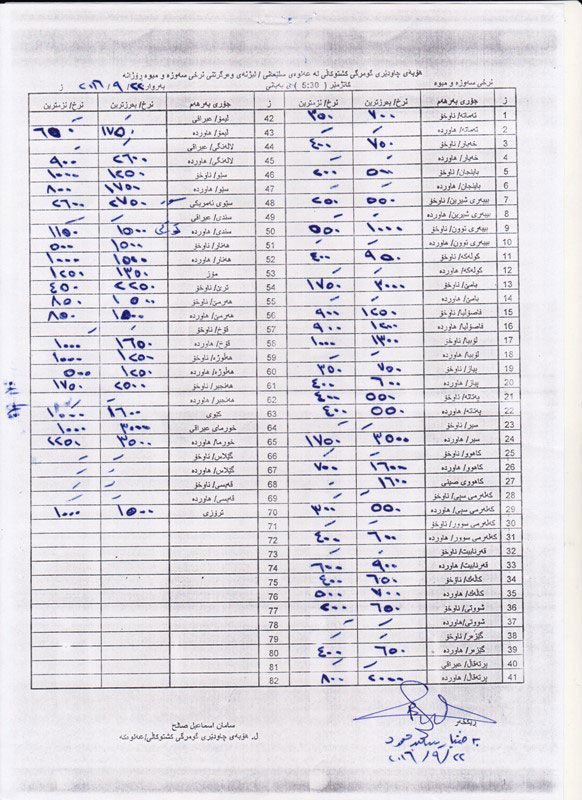 هۆبەی چاودێری گومرگی کشتوکاڵی لە عەلوەی سلێمانی / لیژنەی وەرگرتنی نرخی سەوزە و میوە ڕۆژانە
نرخی سەوزە و میوە کاتژمێر ( 5:30 ) ی بەیانی بەروار ٢٢/ ٩ /٢٠١٦ ز
ز جۆری بەرهەم نرخ/ بەرزترین نرخ/ نزمترین ز جۆری بەرهەم نرخ/ بەرزترین نرخ/ نزمترین
1 تەماتە/ ناوخۆ ٧٠٠ ٣٥٠ 42 لیمۆ/ عیراقی – –
2 تەماتە/ هاوردە – – 43 لیمۆ/ هاوردە ١٧٥٠ ٦٥٠
3 خەیار/ ناوخۆ ٧٥٠ ٤٠٠ 44 لالەنگی/ عیراقی – –
4 خەیار/ هاوردە – – 45 لالەنگی/ هاوردە ٢٦٠٠ ٩٠٠
5 باینجان/ ناوخۆ ٥٠٠ ٢٠٠ 46 سێو/ ناوخۆ ١٢٥٠ ١٠٠٠
6 باینجان/ هاوردە – – 47 سێو/ هاوردە ١٧٥٠ ٨٠٠
7 بیبەری شیرین/ ناوخۆ ٥٥٠ ٢٥٠ 48 سێوی ئەمریکی ٢٧٥٠ ٢٦٠٠
8 بیبەری شیرین/ هاوردە – – 49 سندی/ عیراقی – –
9 بیبەری توون/ ناوخۆ ١٠٠٠ ٥٥٠ 50 سندی/ هاوردە ١٥٠٠ ١١٥٠
10 بیبەری توون/ هاوردە – – 51 هەنار/ ناوخۆ ١٥٠٠ ٥٠٠
11 کولەکە/ ناوخۆ ٩٥٠ ٤٠٠ 52 هەنار/ هاوردە ١٥٠٠ ١٠٠٠
12 کولەکە/ هاوردە – – 53 مۆز ١٣٥٠ ١٢٥٠
13 بامێ/ ناوخۆ ٣٠٠٠ ١٧٥٠ 54 ترێ/ ناوخۆ ٢٢٥٠ ٤٥٠
14 بامێ/ هاوردە – – 55 هەرمێ/ ناوخۆ ١٥٠٠ ٨٥٠
15 فاصۆلیا/ ناوخۆ ١٢٥٠ ٩٠٠ 56 هەرمێ/ هاوردە ١٥٠٠ ٨٥٠
16 فاصۆلیا/ هاوردە ١٢٠٠ ٩٠٠ 57 قۆخ/ ناوخۆ – –
17 لۆبیا/ ناوخۆ ١٣٠٠ ١٠٠٠ 58 قۆخ/ هاوردە ١٦٥٠ ١٠٠٠
18 لۆبیا/ هاوردە – – 59 هەلوژە/ ناوخۆ ١٢٥٠ ١٠٠٠
19 پیاز/ ناوخۆ ٧٥٠ ٣٥٠ 60 هەلوژە/ هاوردە ١٢٥٠ ٥٠٠
20 پیاز/ هاوردە ٦٠٠ ٤٠٠ 61 هەنجیر/ ناوخۆ ٢٥٠٠ ١٧٥٠
21 پەتاتە/ ناوخۆ ٥٥٠ ٤٠٠ 62 هەنجیر/ هاوردە – –
22 پەتاتە/ هاوردە ٥٥٠ ٤٠٠ 63 کێوی ١٦٠٠
23 سیر/ ناوخۆ – – 64 خورمای عیراقی ٣٠٠٠ ١٠٠٠
24 سیر/ هاوردە ٣٥٠٠ ١٧٥٠ 65 خورما/ هاوردە ٣٥٠٠ ٢٢٥٠
25 کاهوو/ ناوخۆ – – 66 گێلاس/ ناوخۆ – –
26 کاهوو/ هاوردە ١٦٠٠ ٧٠٠ 67 گێلاس/ هاوردە – –
27 کاهووی صینی ١٦٠٠ – 68 قەیسی/ ناوخۆ – –
28 کەلەرمی سپی/ ناوخۆ – – 69 قەیسی/ هاوردە – –
29 کەلەرمی سپی/ هاوردە ٥٥٠ ٣٠٠ 70 ترۆزی ١٥٠٠ ١٠٠٠
30 کەلەرمی سوور/ ناوخۆ – – 71
31 کەلەرمی سوور/ هاوردە ٦٠٠ ٤٠٠ 72
32 قەرنابیت/ ناوخۆ – – 73
33 قەرنابیت/ هاوردە ٩٠٠ ٦٠٠ 74
34 کاڵەک/ ناوخۆ ٦٥٠ ٤٠٠ 75
35 کاڵەک/ هاوردە ٧٠٠ ٥٠٠ 76
36 شووتی/ ناوخۆ ٦٥٠ ٢٠٠ 77
37 شووتی/ هاوردە – – 78
38 گێزەر/ ناوخۆ – – 79
39 گێزەر/ هاوردە ٦٥٠ ٤٠٠ 80
40 پرتەقاڵ/ عیراقی – – 81
41 پرتەقاڵ/ هاوردە ٢٠٠٠ ٨٠٠ 82
ڕێکخەر
سامان اسماعیل صالح
ل. هۆبەی چاودێری گومرگی کشتوکاڵی/عەلوەکە
٢٠١٦/٩/٢٢